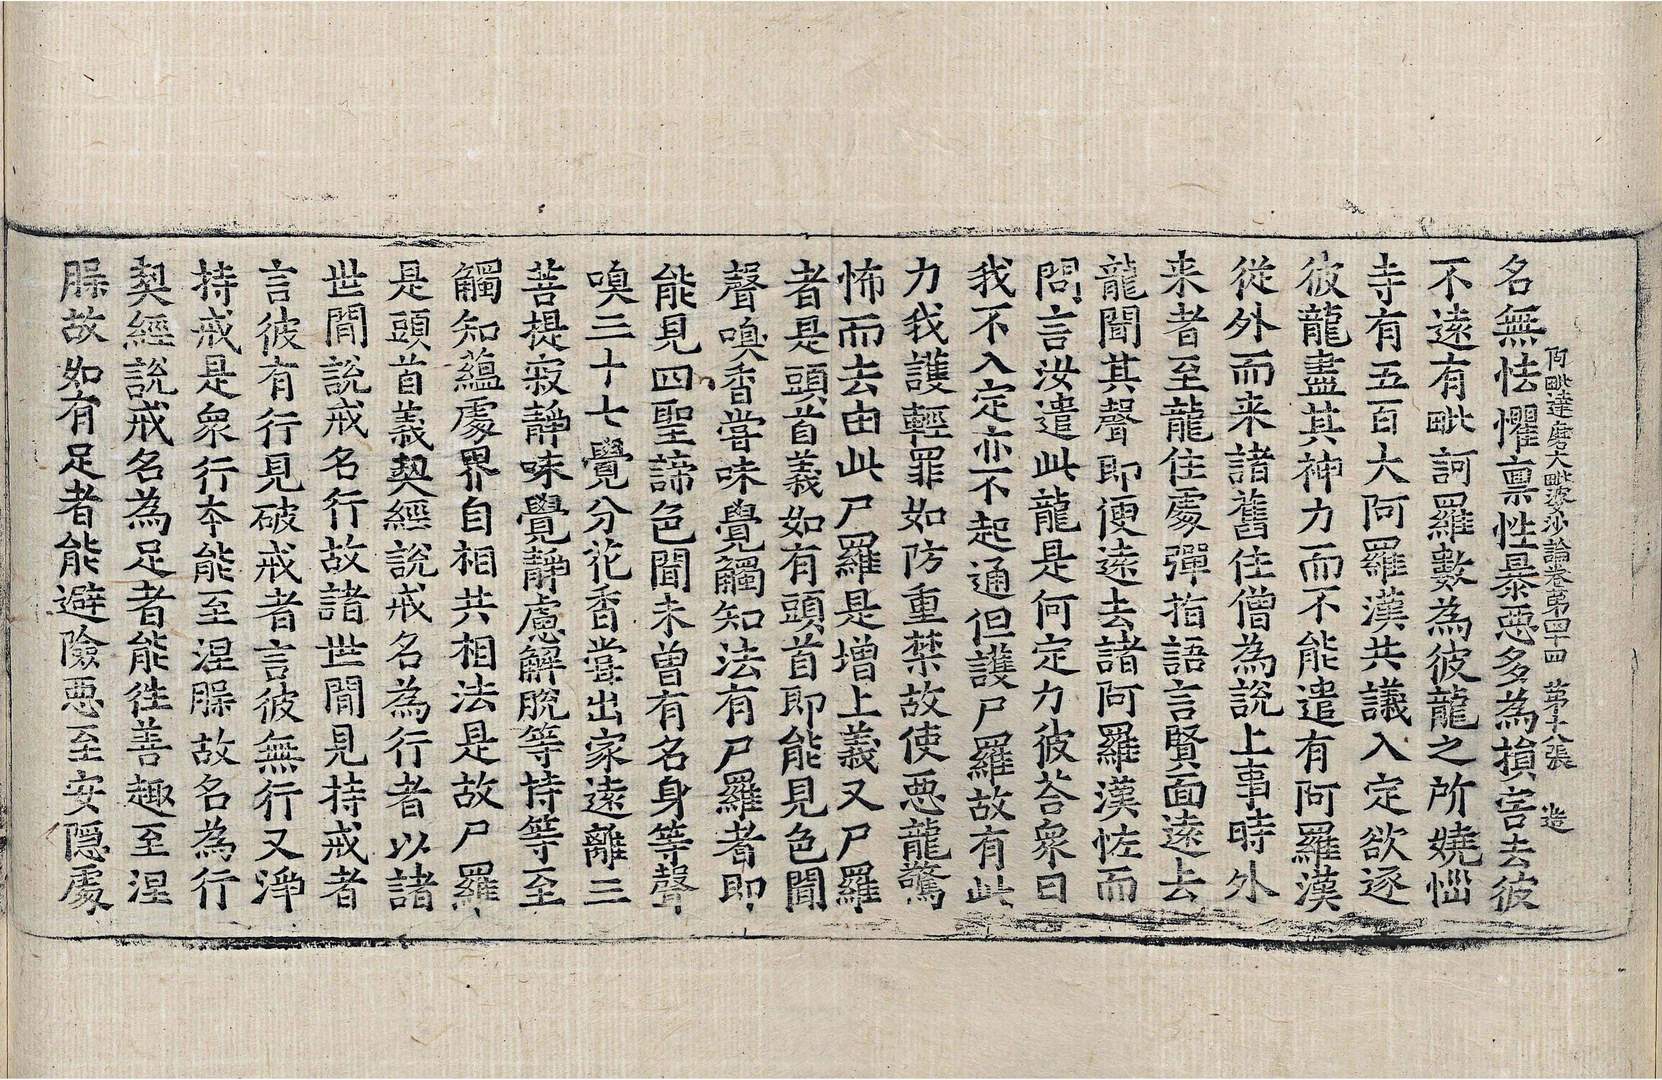 阿毗達磨大毗婆沙論卷第四十四 第十六張 造
名無怯懼稟性暴惡多為損害去彼
不遠有毗訶羅數為彼龍之所嬈惱
寺有五百大阿羅漢共議入定欲逐
彼龍盡其神力而不能遣有阿羅漢
從外而来諸舊住僧為說上事時外
来者至龍住處彈指語言賢面遠去
龍聞其聲即便遠去諸阿羅漢恠而
問言汝遣此龍是何定力彼荅衆曰
我不入定亦不起通但護尸羅故有此
力我護輕罪如防重禁故使惡龍驚
怖而去由此尸羅是增上義又尸羅
者是頭首義如有頭首即能見色聞
聲嗅香甞味覺觸知法有尸羅者即
能見四聖諦色聞未曾有名身等聲
嗅三十七覺分花香甞出家遠離三
菩提寂靜味覺靜慮解脫等持等至
觸知蘊處界自相共相法是故尸羅
是頭首義契經說戒名為行者以諸
世間說戒名行故諸世間見持戒者
言彼有行見破戒者言彼無行又淨
持戒是衆行本能至涅槃故名為行
契經說戒名為足者能徃善趣至涅
槃故如有足者能避險惡至安隱處